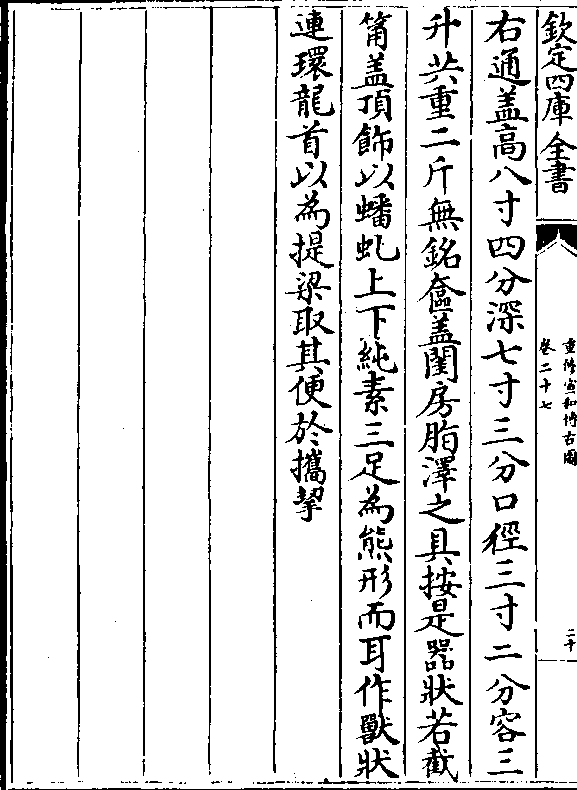 欽定四庫全書
重修宣和博古圖
卷二十七
二十
右通盖高八寸四分深七寸三分口徑三寸二分容三
升共重二斤無銘奩盖閨房脂澤之具按是器狀若截
筩盖頂飾以蟠虬上下純素三足為熊形而耳作獸狀
連環龍首以為提梁取其便於攜挈